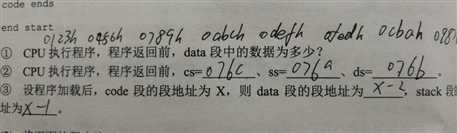 code ends
end start
0123h 0456h 0789h 0abch 0defh 0fedh 0cbah 0987
① CPU 执行程序，程序返回前，data 段中的数据为多少？
② CPU 执行程序，程序返回前，cs=076c、ss=076a、ds=076b。
③ 设程序加载后，code 段的段地址为 X，则 data 段的段地址为 X-2，stack 段
址为X-1。